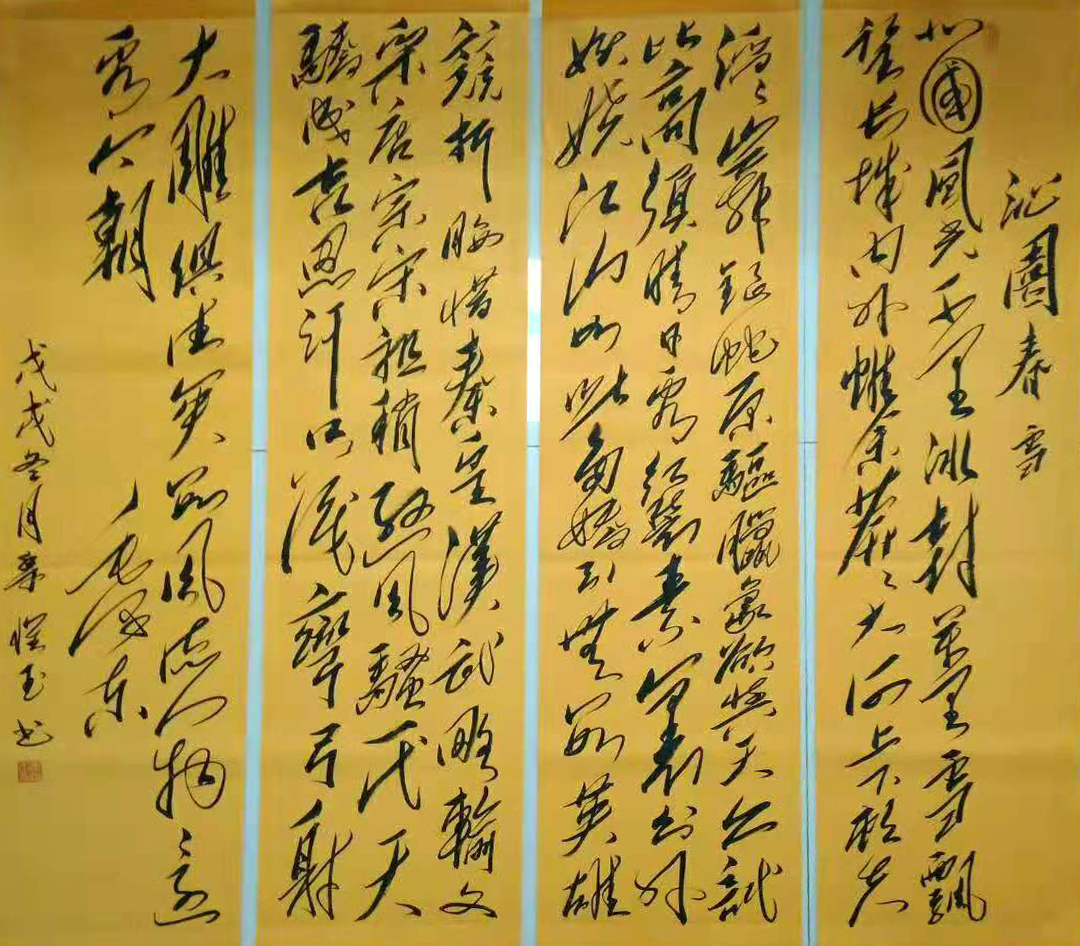 沁園春 雪
北國風光千里冰封萬里雪飄
望長城内外惟余莽〻大河上下頓失
滔〻山舞銀蛇原驅臘象欲與天公試
比高須晴日看紅裝素裹分外
妖嬈江山如此多嬌引無數英雄
競折腰惜秦皇漢武略輸文
采唐宗宋祖稍遜風騷一代天
驕成吉思汗只識彎弓射
大雕俱往矣數風流人物還
看今朝
毛澤東
戊戌冬月 玉书